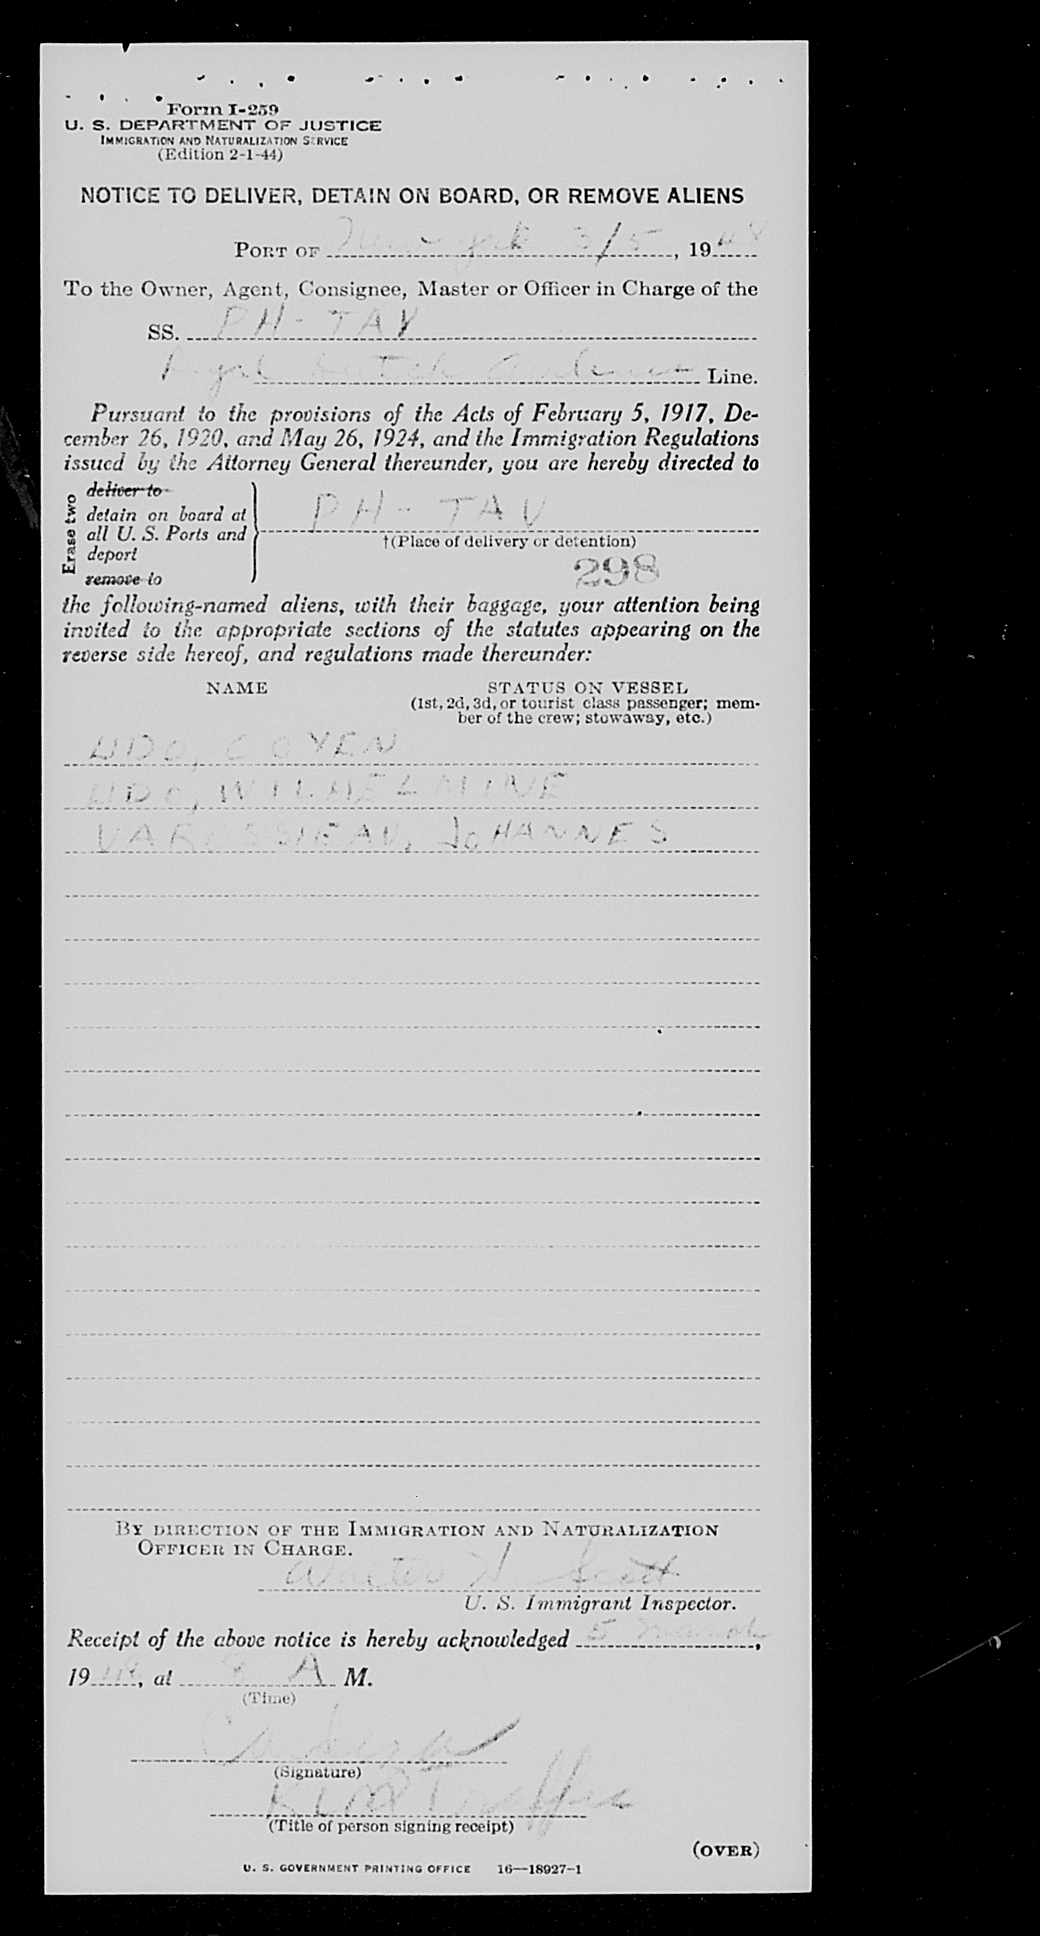 Form I-259
U. S. DEPARTMENT OF JUSTICE
IMMIGRATION AND NATURALIZATION SERVICE
(Edition 2-1-44)
NOTICE TO DELIVER, DETAIN ON BOARD, OR REMOVE ALIENS
PORT OF New York 3/5, 1948
To the Owner, Agent, Consignee, Master or Officer in Charge of the
SS. PH-TAV
Royal Dutch Airlines Line.
Pursuant to the provisions of the Acts of February 5, 1917, De-
cember 26, 1920, and May 26, 1924, and the Immigration Regulations
issued by the Attorney General thereunder, you are hereby directed to
Erase two
deliver to
detain on board at
all U. S. Ports and
deport
remove to
PH-TAV
†(Place of delivery or detention)
298
the following-named aliens, with their baggage, your attention being
invited to the appropriate sections of the statutes appearing on the
reverse side hereof, and regulations made thereunder:
NAME
STATUS ON VESSEL
(1st, 2d, 3d, or tourist class passenger; mem-
ber of the crew; stowaway, etc.)
UDO, COYEN
UDO, WILHELMINE
VAROSSIEAU, JOHANNES
BY DIRECTION OF THE IMMIGRATION AND NATURALIZATION
OFFICER IN CHARGE.
Walter H. Scott
U. S. Immigrant Inspector.
Receipt of the above notice is hereby acknowledged 5 March,
1948, at 8 A M.
(Time)
(Signature)
KLM Traffic
(Title of person signing receipt)
(OVER)
U. S. GOVERNMENT PRINTING OFFICE 16—18927-1